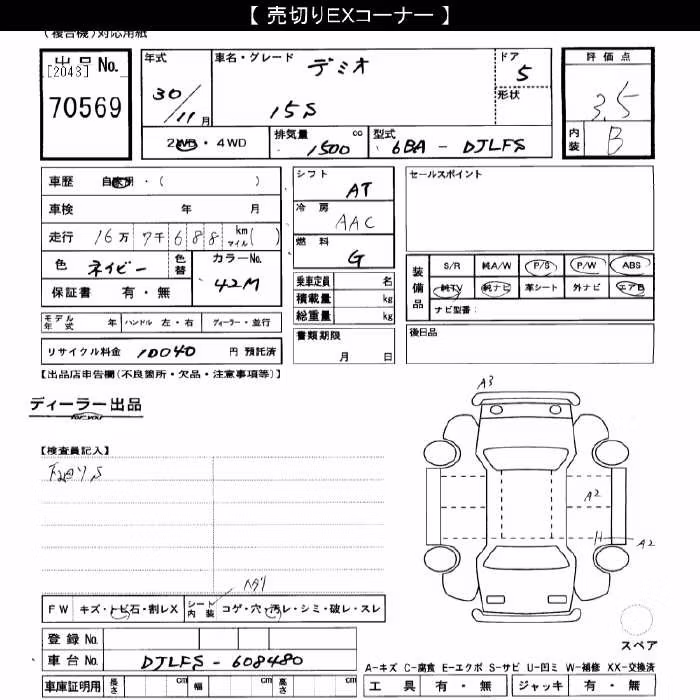 【 売切りEXコーナー 】
(複合機)対応用紙
出品 No.
[2043]
70569
年式
30/11月
車名・グレード
デミオ
15S
ドア
5
形状
評価点
3.5
内装 B
2WD・4WD
排気量 1500 cc
型式 6BA - DJLFS
車歴 自家用・( )
車検 年 月
走行 16万 7千 6 8 8 km マイル( )
色 ネイビー 色替 カラーNo. 42M
保証書 有・無
シフト AT
冷房 AAC
燃料 G
乗車定員 名
積載量 kg
総重量 kg
書類期限
月 日
セールスポイント
装備品
S/R 純A/W P/S P/W ABS
純TV 純ナビ 革シート 外ナビ エアB
ナビ型番:
後日品
モデル年式 年 ハンドル 左・右 ディーラー・並行
リサイクル料金 10040 円 預託済
【出品店申告欄(不良箇所・欠品・注意事項等)】
ディーラー出品
for you
【検査員記入】
A3
A2
A2
ヘタリ
FW キズ・トビ石・割レX シート内装 コゲ・穴・汚レ・シミ・破レ・スレ
登録 No.
車台 No. DJLFS - 608480
車庫証明用 長さ cm 幅 cm 高さ cm
スペア
A-キズ C-腐食 E-エクボ S-サビ U-凹ミ W-補修 XX-交換済
工具 有・無 ジャッキ 有・無